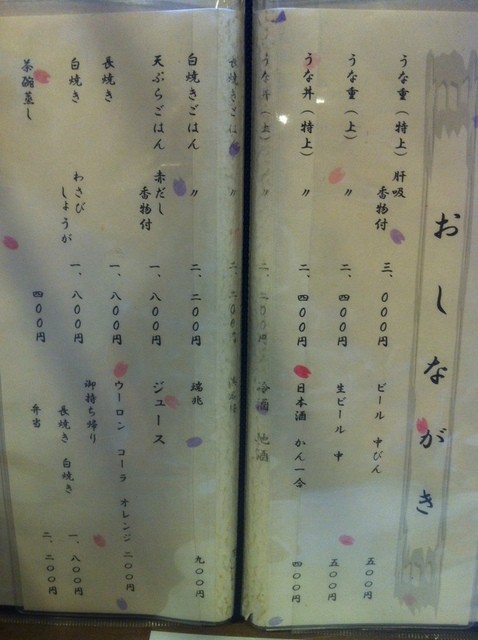 おしながき
うな重（特上） 肝吸 香物付 三、〇〇〇円
うな重（上） 〃 二、四〇〇円
うな丼（特上） 〃 二、四〇〇円
うな丼（上） 〃
長焼きごはん 〃
白焼きごはん 〃 二、二〇〇円
天ぷらごはん 赤だし 香物付 一、八〇〇円
長焼き 一、八〇〇円
白焼き わさび しょうが 一、八〇〇円
茶碗蒸し 四〇〇円
ビール 中びん 五〇〇円
生ビール 中 五〇〇円
日本酒 かん一合 四〇〇円
冷酒 地酒
瑞兆 九〇〇円
ジュース
ウーロン コーラ オレンジ 二〇〇円
御持ち帰り
長焼き 白焼き 一、八〇〇円
弁当 二、二〇〇円